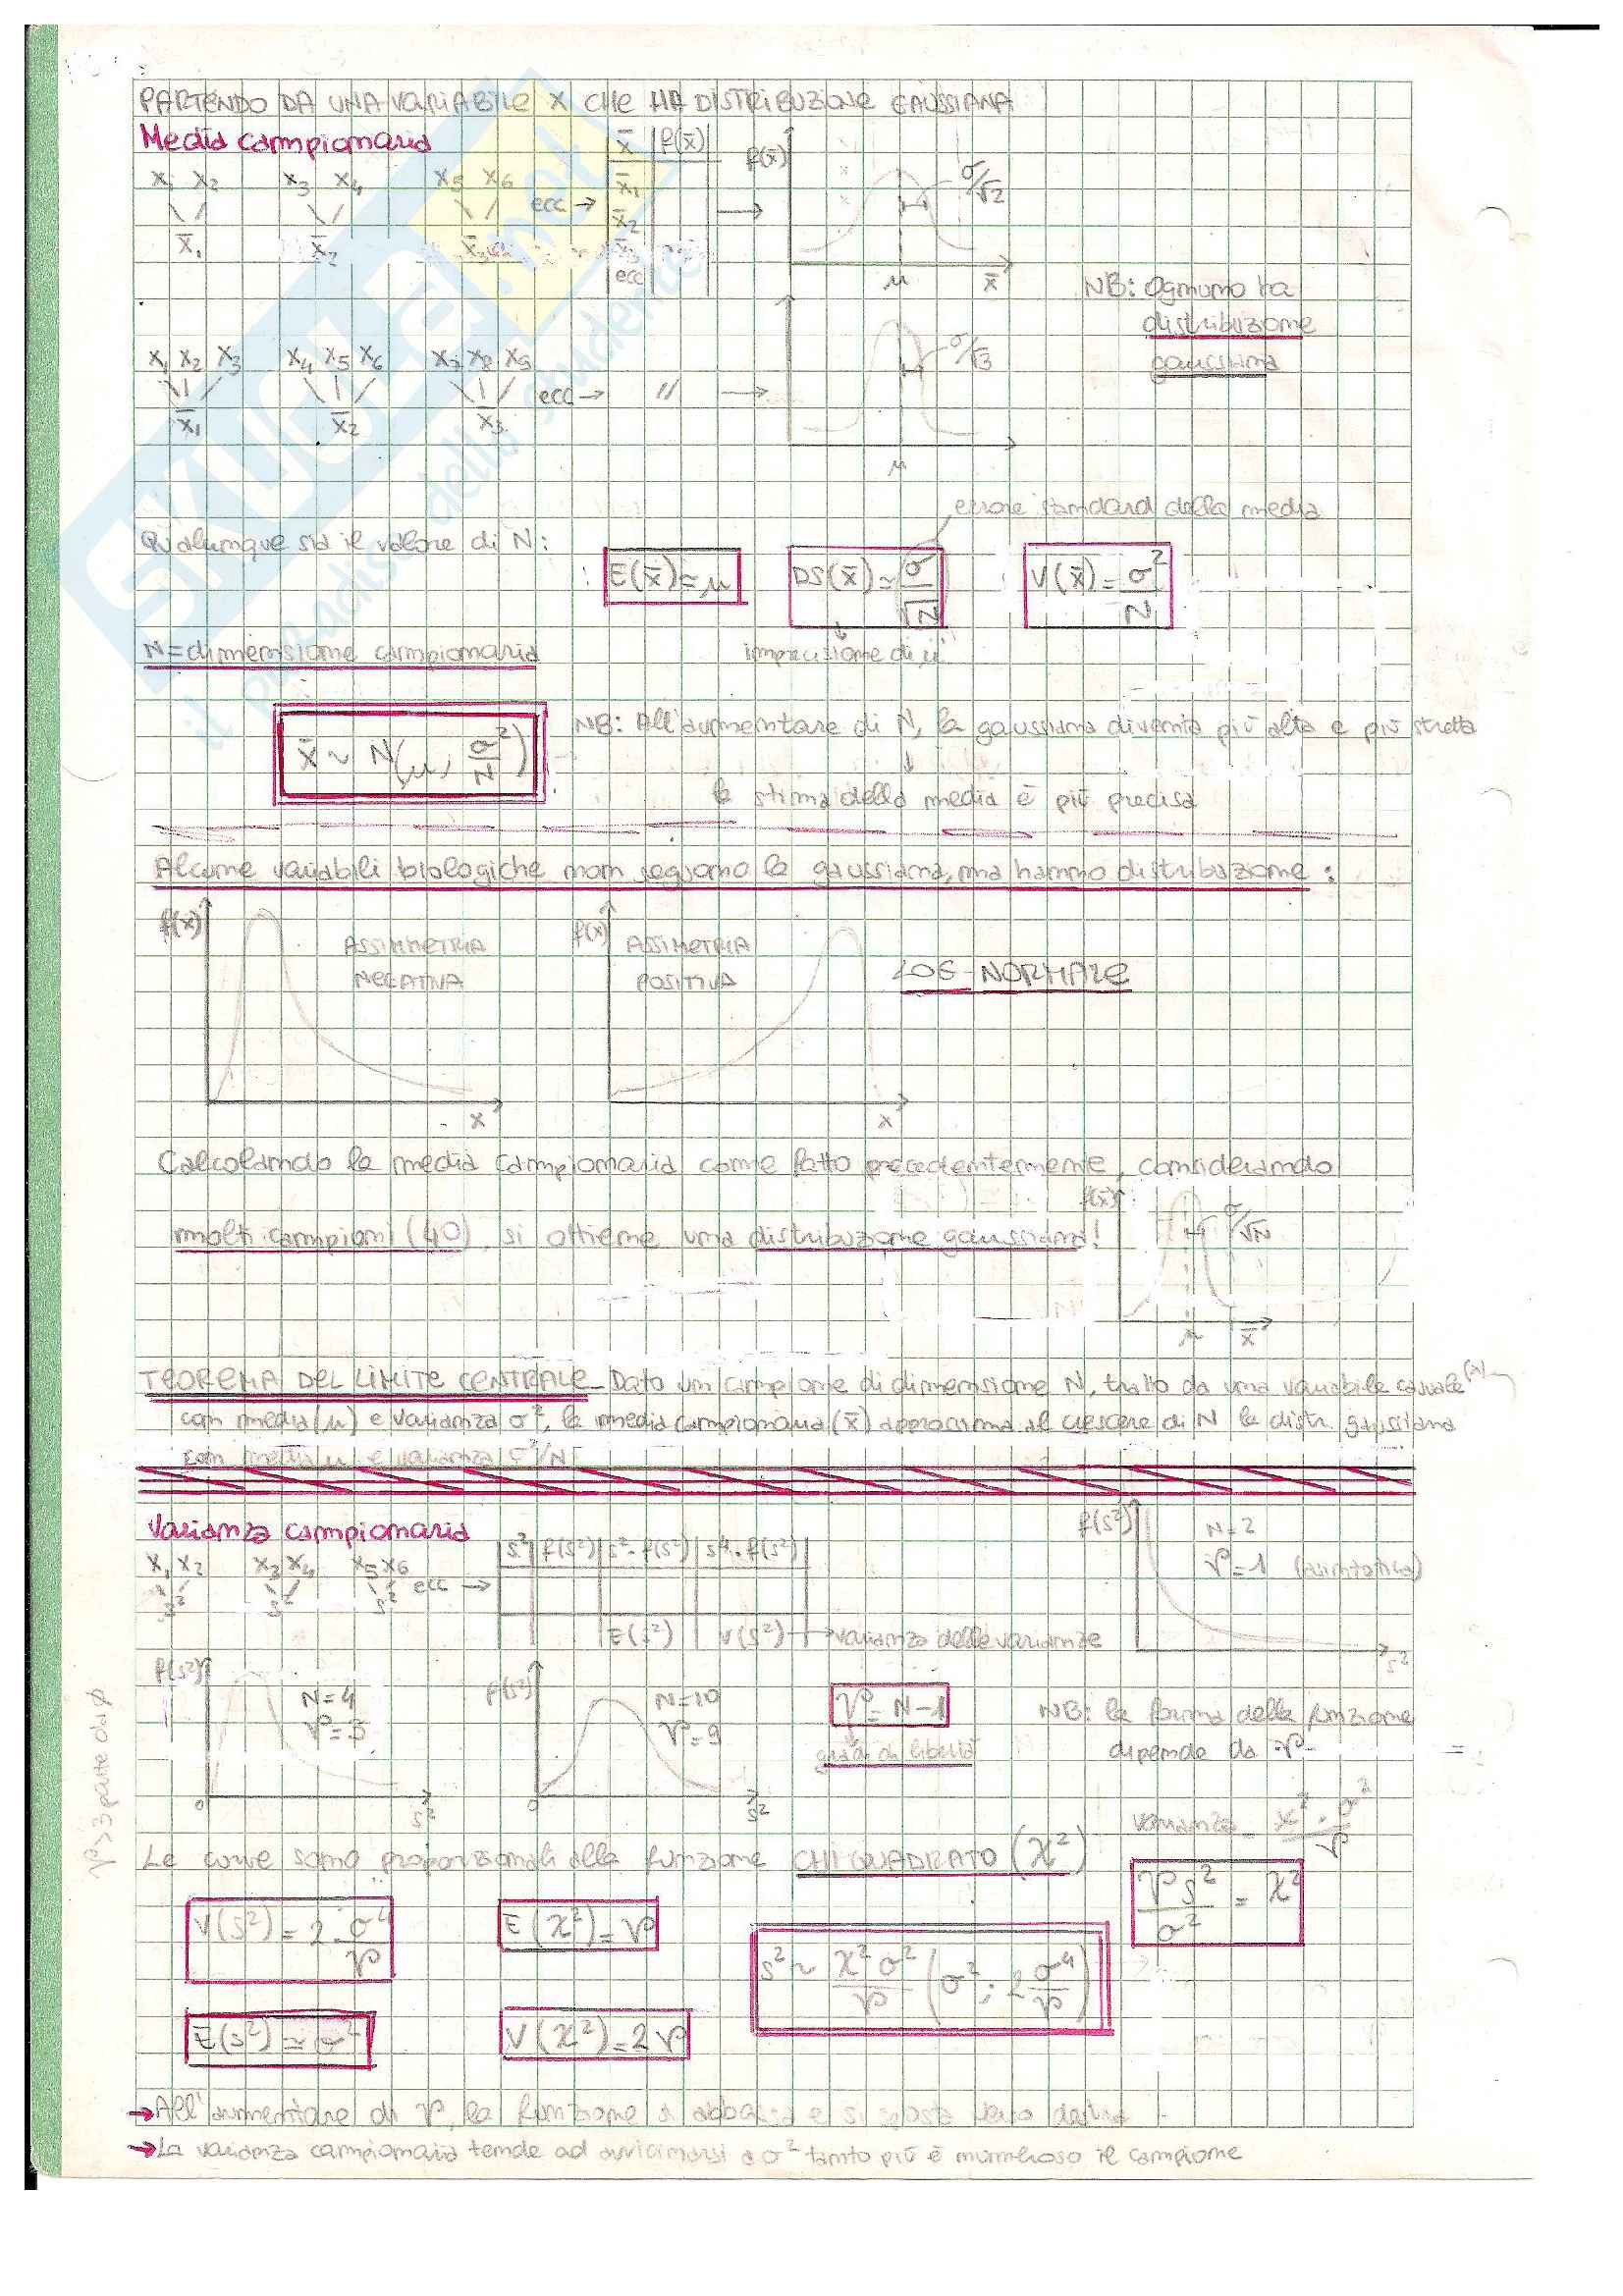 PARTENDO DA UNA VARIABILE X CHE HA DISTRIBUZIONE GAUSSIANA
Media campionaria
x₁ x₂ x₃ x₄ x₅ x₆
x̄₁ x̄₂ x̄₃
ecc →
x̄ f(x̄)
x̄₁
x̄₂
x̄₃
ecc
f(x̄)
σ/√2
μ x̄
NB: Ognuno ha
distribuzione
gaussiana
x₁ x₂ x₃ x₄ x₅ x₆ x₇ x₈ x₉
x̄₁ x̄₂ x̄₃
ecc → // →
σ/√3
μ
errore standard della media
Qualunque sia il valore di N:
E(x̄) ≃ μ
DS(x̄) ≃ σ/√N
V(x̄) = σ²/N
N = dimensione campionaria
imprecisione di μ
x̄ ~ N(μ, σ²/N)
NB: All'aumentare di N, la gaussiana diventa più alta e più stretta
↓
la stima della media è più precisa
Alcune variabili biologiche non seguono la gaussiana, ma hanno distribuzione:
f(x) ASSIMMETRIA
NEGATIVA
x
f(x) ASSIMETRIA
POSITIVA
x
LOG-NORMALE
Calcolando la media campionaria come fatto precedentemente, considerando
molti campioni (40) si ottiene una distribuzione gaussiana!
f(x̄) σ/√N
μ x̄
TEOREMA DEL LIMITE CENTRALE Dato un campione di dimensione N, tratto da una variabile casuale (x)
con media (μ) e varianza σ², la media campionaria (x̄) approssima al crescere di N la distr. gaussiana
con media μ e varianza σ²/N
Varianza campionaria
x₁ x₂ x₃ x₄ x₅ x₆
s² s² s²
ecc →
s² f(s²) s²·f(s²) s⁴·f(s²)
E(s²) V(s²) → varianza delle varianze
f(s²) N=2
ν=1 (asintotica)
s²
f(s²) N=4
ν=3
0 s²
f(s²) N=10
ν=9
0 s²
ν = N-1
gradi di libertà
NB: la forma della funzione
dipende da ν
ν>3 parte da 0
Le curve sono proporzionali alla funzione CHI QUADRATO (χ²)
varianza = χ²·σ²/ν
νs²/σ² = χ²
V(s²) = 2 σ⁴/ν
E(χ²) = ν
s² ~ χ²σ²/ν (σ²; 2σ⁴/ν)
E(s²) ≃ σ²
V(χ²) = 2ν
→ All'aumentare di ν, la funzione si abbassa e si sposta verso destra
→ La varianza campionaria tende ad avvicinarsi a σ² tanto più è numeroso il campione
SKUOLA.net
il paradiso dello studente